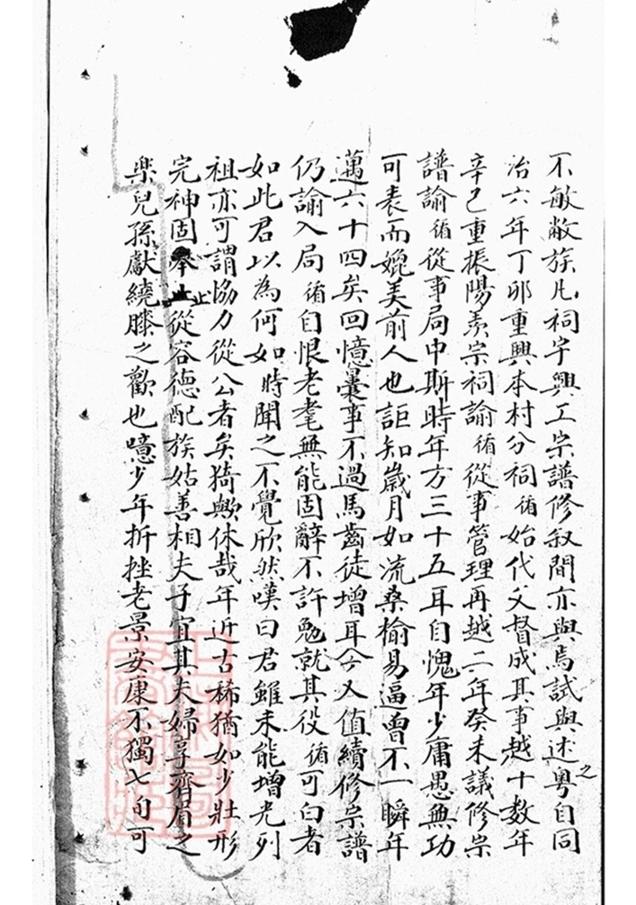 不敏敝族凡祠宇興工宗譜修叙間亦與焉試與述之粵自同
治六年丁卯重興本村分祠循始代父督成其事越十数年
辛巳重振陽羡宗祠諭循從事管理再越二年癸未議修宗
譜諭循從事局中斯時年方三十五耳自愧年少庸愚無功
可表而媲美前人也詎知歲月如流桑榆易逼曾不一瞬年
邁六十四矣回憶曩事不過馬齒徒增耳今又值續修宗譜
仍諭入局循自恨老耄無能固辭不許勉就其役循可白者
如此君以為何如時聞之不覺欣然嘆曰君雖未能增光列
祖亦可謂協力從公者矣猗歟休哉年近古稀猶如少壯形
完神固舉止從容德配族姑善相夫子宜其夫婦享齊眉之
樂兒孫獻繞膝之歡也噫少年折挫老景安康不獨七旬可